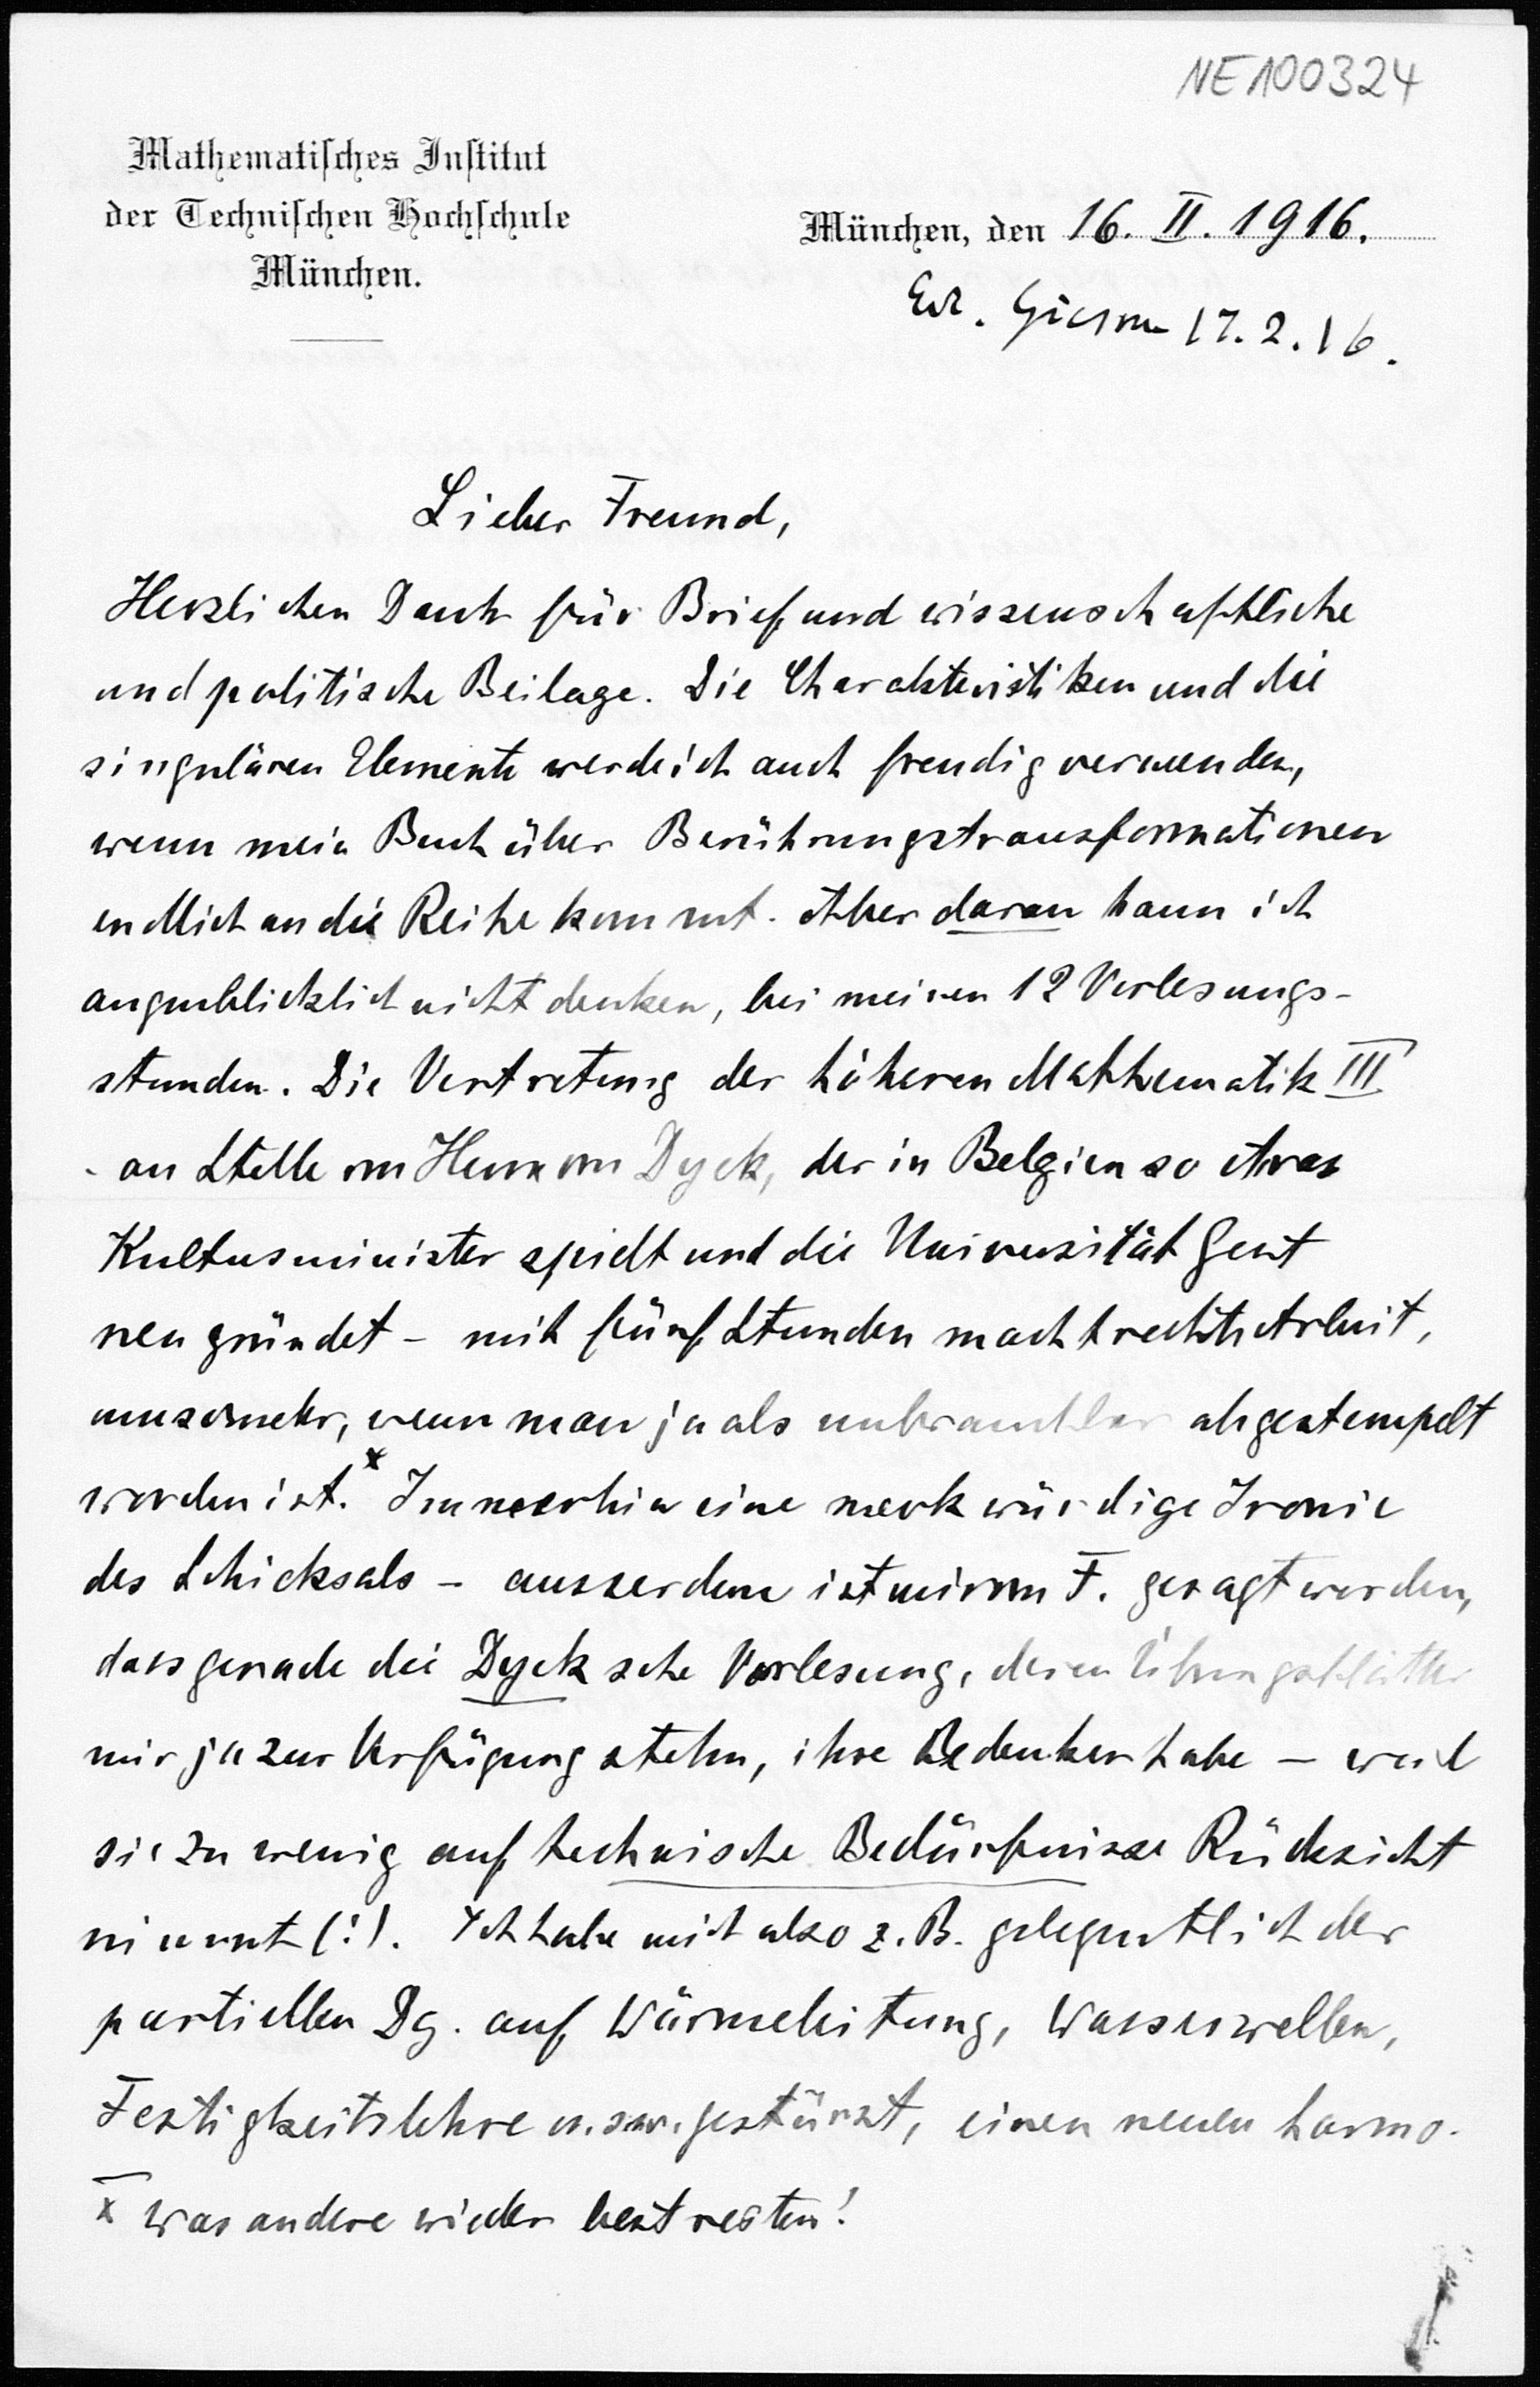 NE100324
Mathematisches Institut
der Technischen Hochschule
München.
München, den 16. II. 1916.
Erh. Giessen 17.2.16.
Lieber Freund,
Herzlichen Dank für Brief und wissenschaftliche
und politische Beilage. Die Charakteristiken und die
singulären Elemente werde ich auch freudig verwenden,
wenn mein Buch über Berührungstransformationen
endlich an die Reihe kommt. Aber daran kann ich
augenblicklich nicht denken, bei meinen 12 Vorlesungs-
stunden. Die Vertretung der höheren Mathematik III
- an Stelle von Herrn von Dyck, der in Belgien so etwas
Kultusminister spielt und die Universität Gent
neu gründet - mit fünf Stunden macht rechte Arbeit,
umsomehr, wenn man ja als unbrauchbar abgestempelt
worden ist.x Immerhin eine merkwürdige Ironie
des Schicksals - ausserdem ist mir von F. gesagt worden,
dass gerade die Dycksche Vorlesung, deren Übungsblätter
mir ja zur Verfügung stehn, ihre Bedenken habe - weil
sie zu wenig auf technische Bedürfnisse Rücksicht
nimmt (!). Ich habe mich also z. B. gelegentlich der
partiellen Dg. auf Wärmeleitung, Wasserwellen,
Festigkeitslehre u.s.w. gestürzt, einen neuen harmo-
x was andere wieder bestreiten!